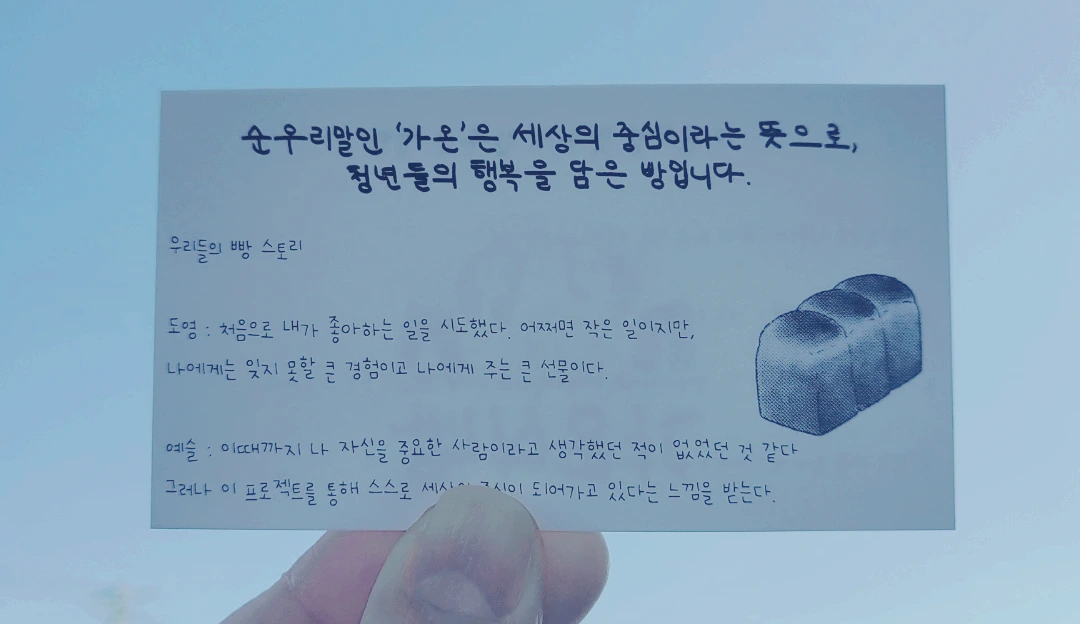 순우리말인 '가온'은 세상의 중심이라는 뜻으로,
청년들의 행복을 담은 빵입니다.
우리들의 빵 스토리
도영 : 처음으로 내가 좋아하는 일을 시도했다. 어쩌면 작은 일이지만,
나에게는 잊지 못할 큰 경험이고 나에게 주는 큰 선물이다.
예슬 : 이때까지 나 자신을 중요한 사람이라고 생각했던 적이 없었던 것 같다
그러나 이 프로젝트를 통해 스스로 되어가고 있다는 느낌을 받는다.